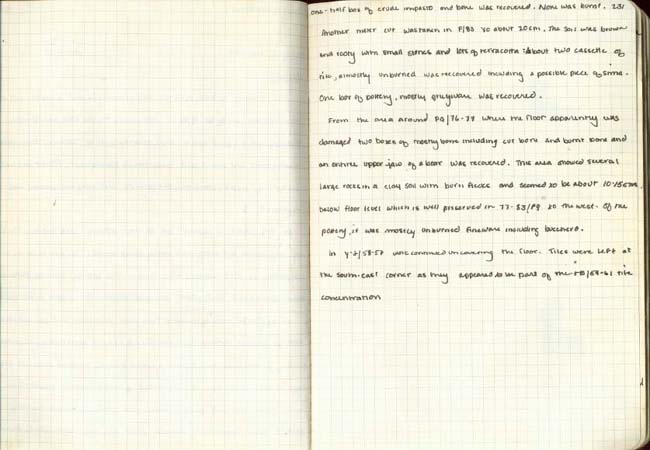 one-half box of crude impasto and bone was recovered. None was burnt. 231
Another cut was taken in F/83 to about 20cm. The soil was brown
and rooty with small stones and lots of terracotta. About two cassette of
tile, mostly unburned was recovered including a possible piece of sima.
One box of pottery, mostly greyware was recovered.
From the area around 76-78 where the floor apparently was
damaged two boxes of mostly bone including cut bone and burnt bone and
an entire upper jaw of a boar was recovered. This area showed several
large rocks in a clay soil with burn flecks and seemed to be about 10-15cm
below floor level which is well preserved in to the west. Of the
pottery, it was mostly unburned fineware including bucchero.
In we continued uncovering the floor. Tiles were left at
the south-east corner as they appeared to be part of the tile
concentration